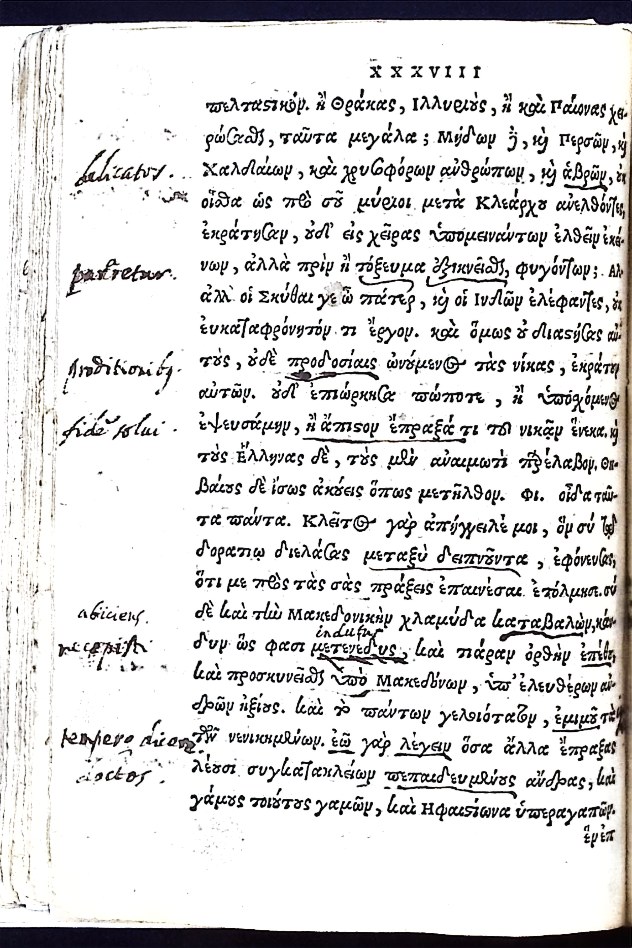 XXXVIII
πελταστικόν. ἢ Θρᾷκας, Ἰλλυριοὺς, ἢ καὶ Παίονας χει-
ρώσασθαι, ταῦτα μεγάλα; Μήδων δὲ, καὶ Περσῶν, καὶ
delicatos. Χαλδαίων, καὶ χρυσοφόρων ἀνθρώπων, καὶ ἁβρῶν, οὐκ
οἶσθα ὡς πρὸ σοῦ μύριοι μετὰ Κλεάρχου ἀνελθόντες,
ἐκράτησαν, οὐδ' εἰς χεῖρας ὑπομεινάντων ἐλθεῖν ἐκεί-
νων, ἀλλὰ πρὶν ἢ τόξευμα ἐξικνεῖσθαι, φυγόντων; Αλ.
ἀλλ' οἱ Σκύθαι γε ὦ πάτερ, καὶ οἱ Ἰνδῶν ἐλέφαντες, οὐκ
εὐκαταφρόνητόν τι ἔργον. καὶ ὅμως οὐ διαστήσας αὐ-
proditionibus. τοὺς, οὐδὲ προδοσίαις ὠνούμενος τὰς νίκας, ἐκράτουν
αὐτῶν. οὐδ' ἐπιώρκησα πώποτε, ἢ ὑποσχόμενος
ἐψευσάμην, ἢ ἄπιστον ἔπραξά τι τοῦ νικᾶν ἕνεκα. καὶ
τοὺς Ἕλληνας δὲ, τοὺς μὲν ἀναιμωτὶ παρέλαβον. Θη-
βαίους δὲ ἴσως ἀκούεις ὅπως μετῆλθον. Φι. οἶδα ταῦ-
τα πάντα. Κλεῖτος γὰρ ἀπήγγειλέ μοι, ὃν σὺ τῷ
δορατίῳ διελάσας μεταξὺ δειπνοῦντα, ἐφόνευσας,
ὅτι με πρὸς τὰς σὰς πράξεις ἐπαινέσαι ἐτόλμησε. σὺ
abiciens. δὲ καὶ τὴν Μακεδονικὴν χλαμύδα καταβαλὼν, κάν-
indutus
δυν ὥς φασι μετενέδυς, καὶ τιάραν ὀρθὴν ἐπέθου,
καὶ προσκυνεῖσθαι ὑπὸ Μακεδόνων, ὑπ' ἐλευθέρων ἀν-
δρῶν ἠξίους. καὶ τὸ πάντων γελοιότατον, ἐμιμοῦ τὰ
τῶν νενικημένων. ἐῶ γὰρ λέγειν ὅσα ἄλλα ἔπραξας
doctos. λέουσι συγκατακλείων πεπαιδευμένους ἄνδρας, καὶ
γάμους τοιούτους γαμῶν, καὶ Ηφαιστίωνα ὑπεραγαπῶν.
ἓν ἐπ